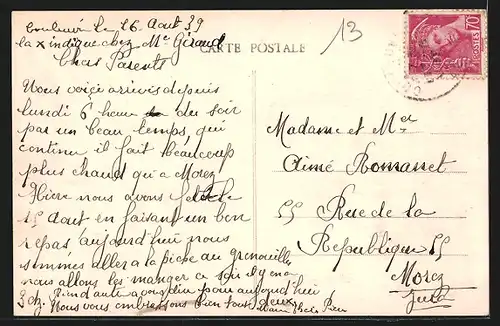 Toulouse le 16 Aout 39
la x indique chez Me Giraud
Chers Parents
CARTE POSTALE
13
POSTES 70
Nous voici arrivés depuis
lundi 6 heure du soir
par un beau temps, qui
continue il fait beaucoup
plus chaud qu'a Morez
Hière nous avons fêté le
15 aout en faisant un bon
repas aujourd'hui nous
sommes aller a la pêche au grenouilles
nous allons les manger ce soir il y en a
3 dz. Rien d'autre a vous dire pour aujourd'hui
Nous vous embrassons bien tout deux
Madame et Mer
Aimé Romanet
55 Rue de la
Republique 55
Morez
Jura